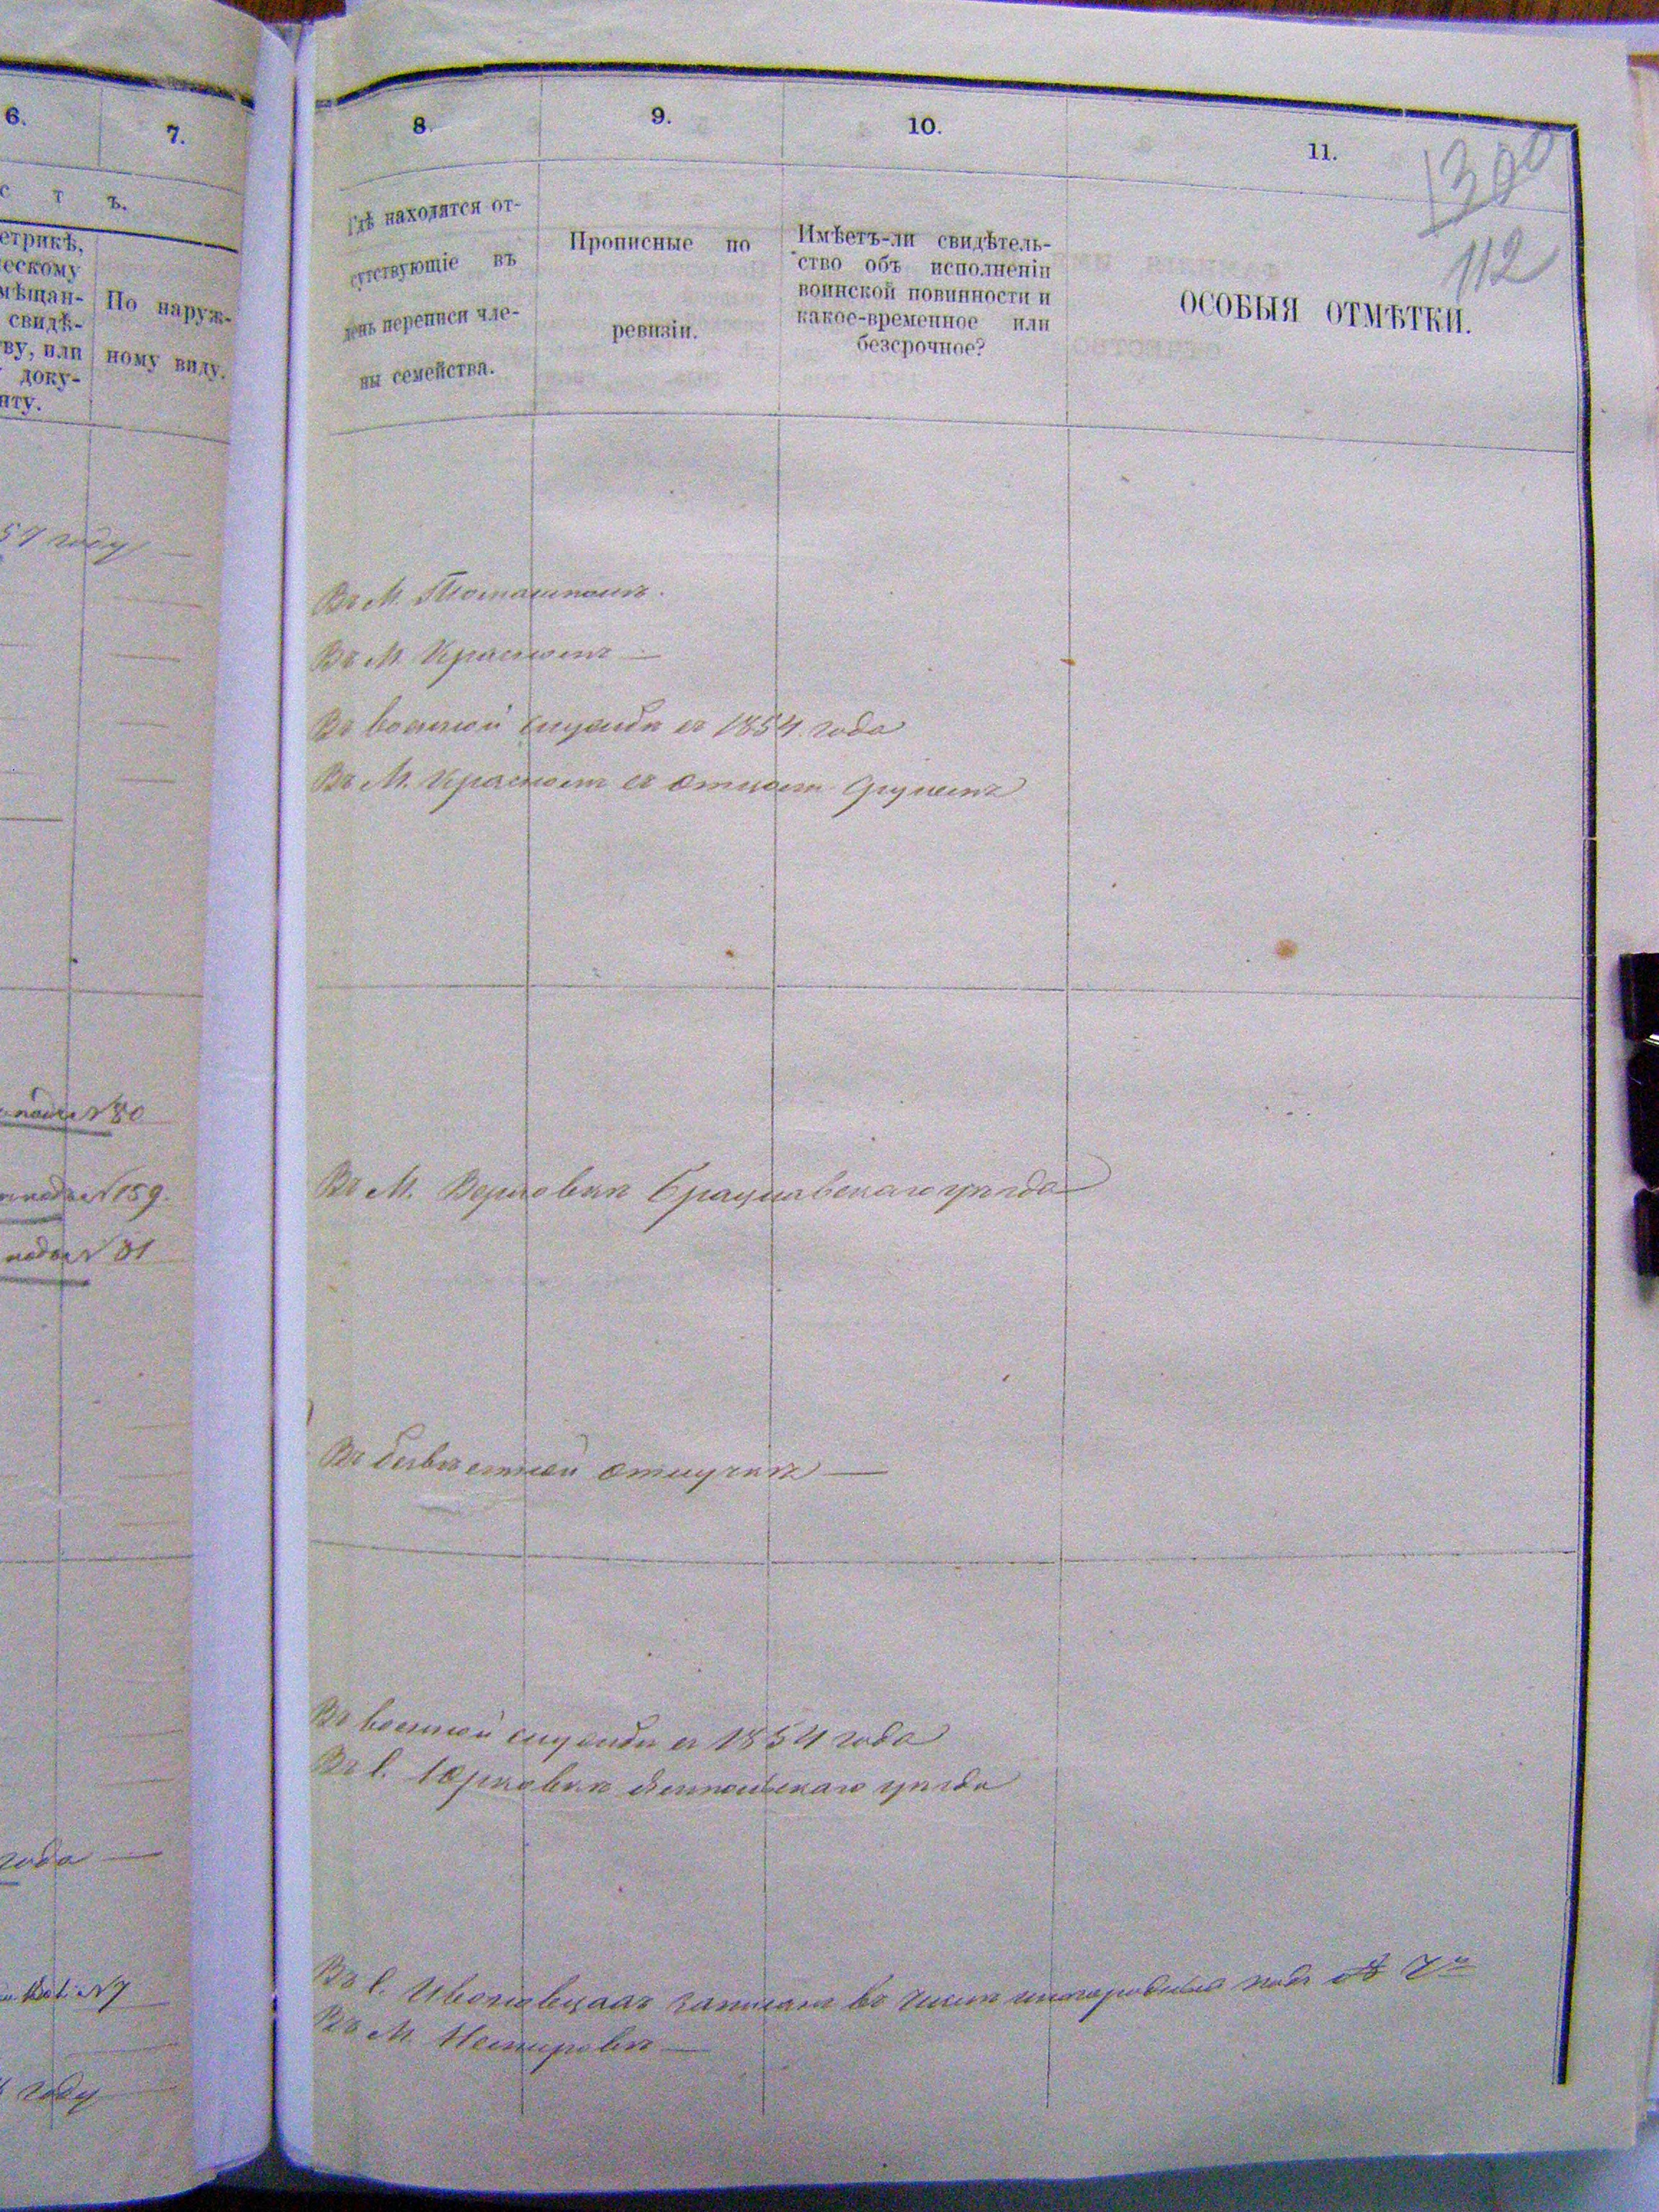 6.
7.
с т ъ.
етрикѣ,
ескому
мѣщан-
свидѣ-
ву, или
доку-
нту.
По наруж-
ному виду.
57 году
№ 80
№ 159.
№ 81
года
№ 7
году
8.
9.
10.
11.
300
112
Гдѣ находятся от-
сутствующіе въ
день переписи чле-
ны семейства.
Прописные по
ревизіи.
Имѣетъ-ли свидѣтель-
ство объ исполненіи
воинской повинности и
какое-временное или
безсрочное?
ОСОБЫЯ ОТМѢТКИ.
Въ М. Томашполѣ.
Въ М. Красномъ
Въ военной службѣ съ 1854 года
Въ М. Красномъ съ отцомъ
Въ М. Верховкѣ Брацлавскаго уѣзда
Въ безвѣстной отлучкѣ
Въ военной службѣ съ 1854 года
Въ с. Юрковкѣ Ямпольскаго уѣзда
Въ с. записанъ въ числѣ подъ №
Въ М. Немировѣ